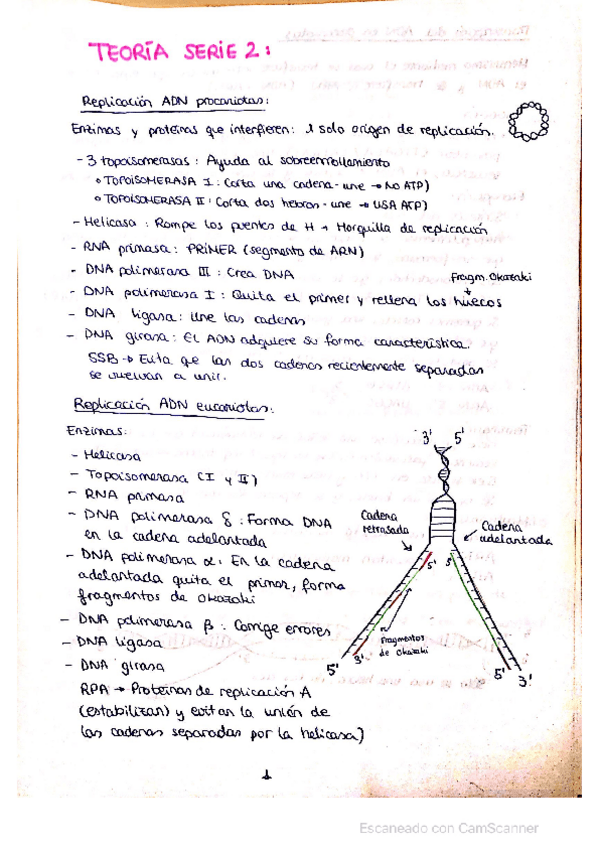 TEORÍA SERIE 2:
Replicación ADN procariotas:
Enzimas y proteínas que interfieren: 1 solo origen de replicación.
- 3 topoisomerasas: Ayuda al sobreenrollamiento
◦ TOPOISOMERASA I: Corta una cadena - une → NO ATP)
◦ TOPOISOMERASA II: Corta dos hebras - une → USA ATP)
- Helicasa: Rompe los puentes de H → Horquilla de replicación
- RNA primasa: PRIMER (segmento de ARN)
- DNA polimerasa III: Crea DNA
Fragm. Okazaki
- DNA polimerasa I: Quita el primer y rellena los huecos
- DNA ligasa: Une las cadenas
- DNA girasa: El ADN adquiere su forma característica.
SSB → Evita que las dos cadenas recientemente separadas
se vuelvan a unir.
Replicación ADN eucariotas:
Enzimas:
- Helicasa
- Topoisomerasa (I y II)
- RNA primasa
- DNA polimerasa δ: Forma DNA
en la cadena adelantada
- DNA polimerasa α: En la cadena
adelantada quita el primer, forma
fragmentos de Okazaki
- DNA polimerasa β: Corrige errores
- DNA ligasa
- DNA girasa
RPA → Proteínas de replicación A
(estabilizan) y evitan la unión de
las cadenas separadas por la helicasa)
3' 5'
Cadena
retrasada
Cadena
adelantada
5' 5'
Fragmentos
de Okazaki
5' 3'
5' 3'
1
Escaneado con CamScanner